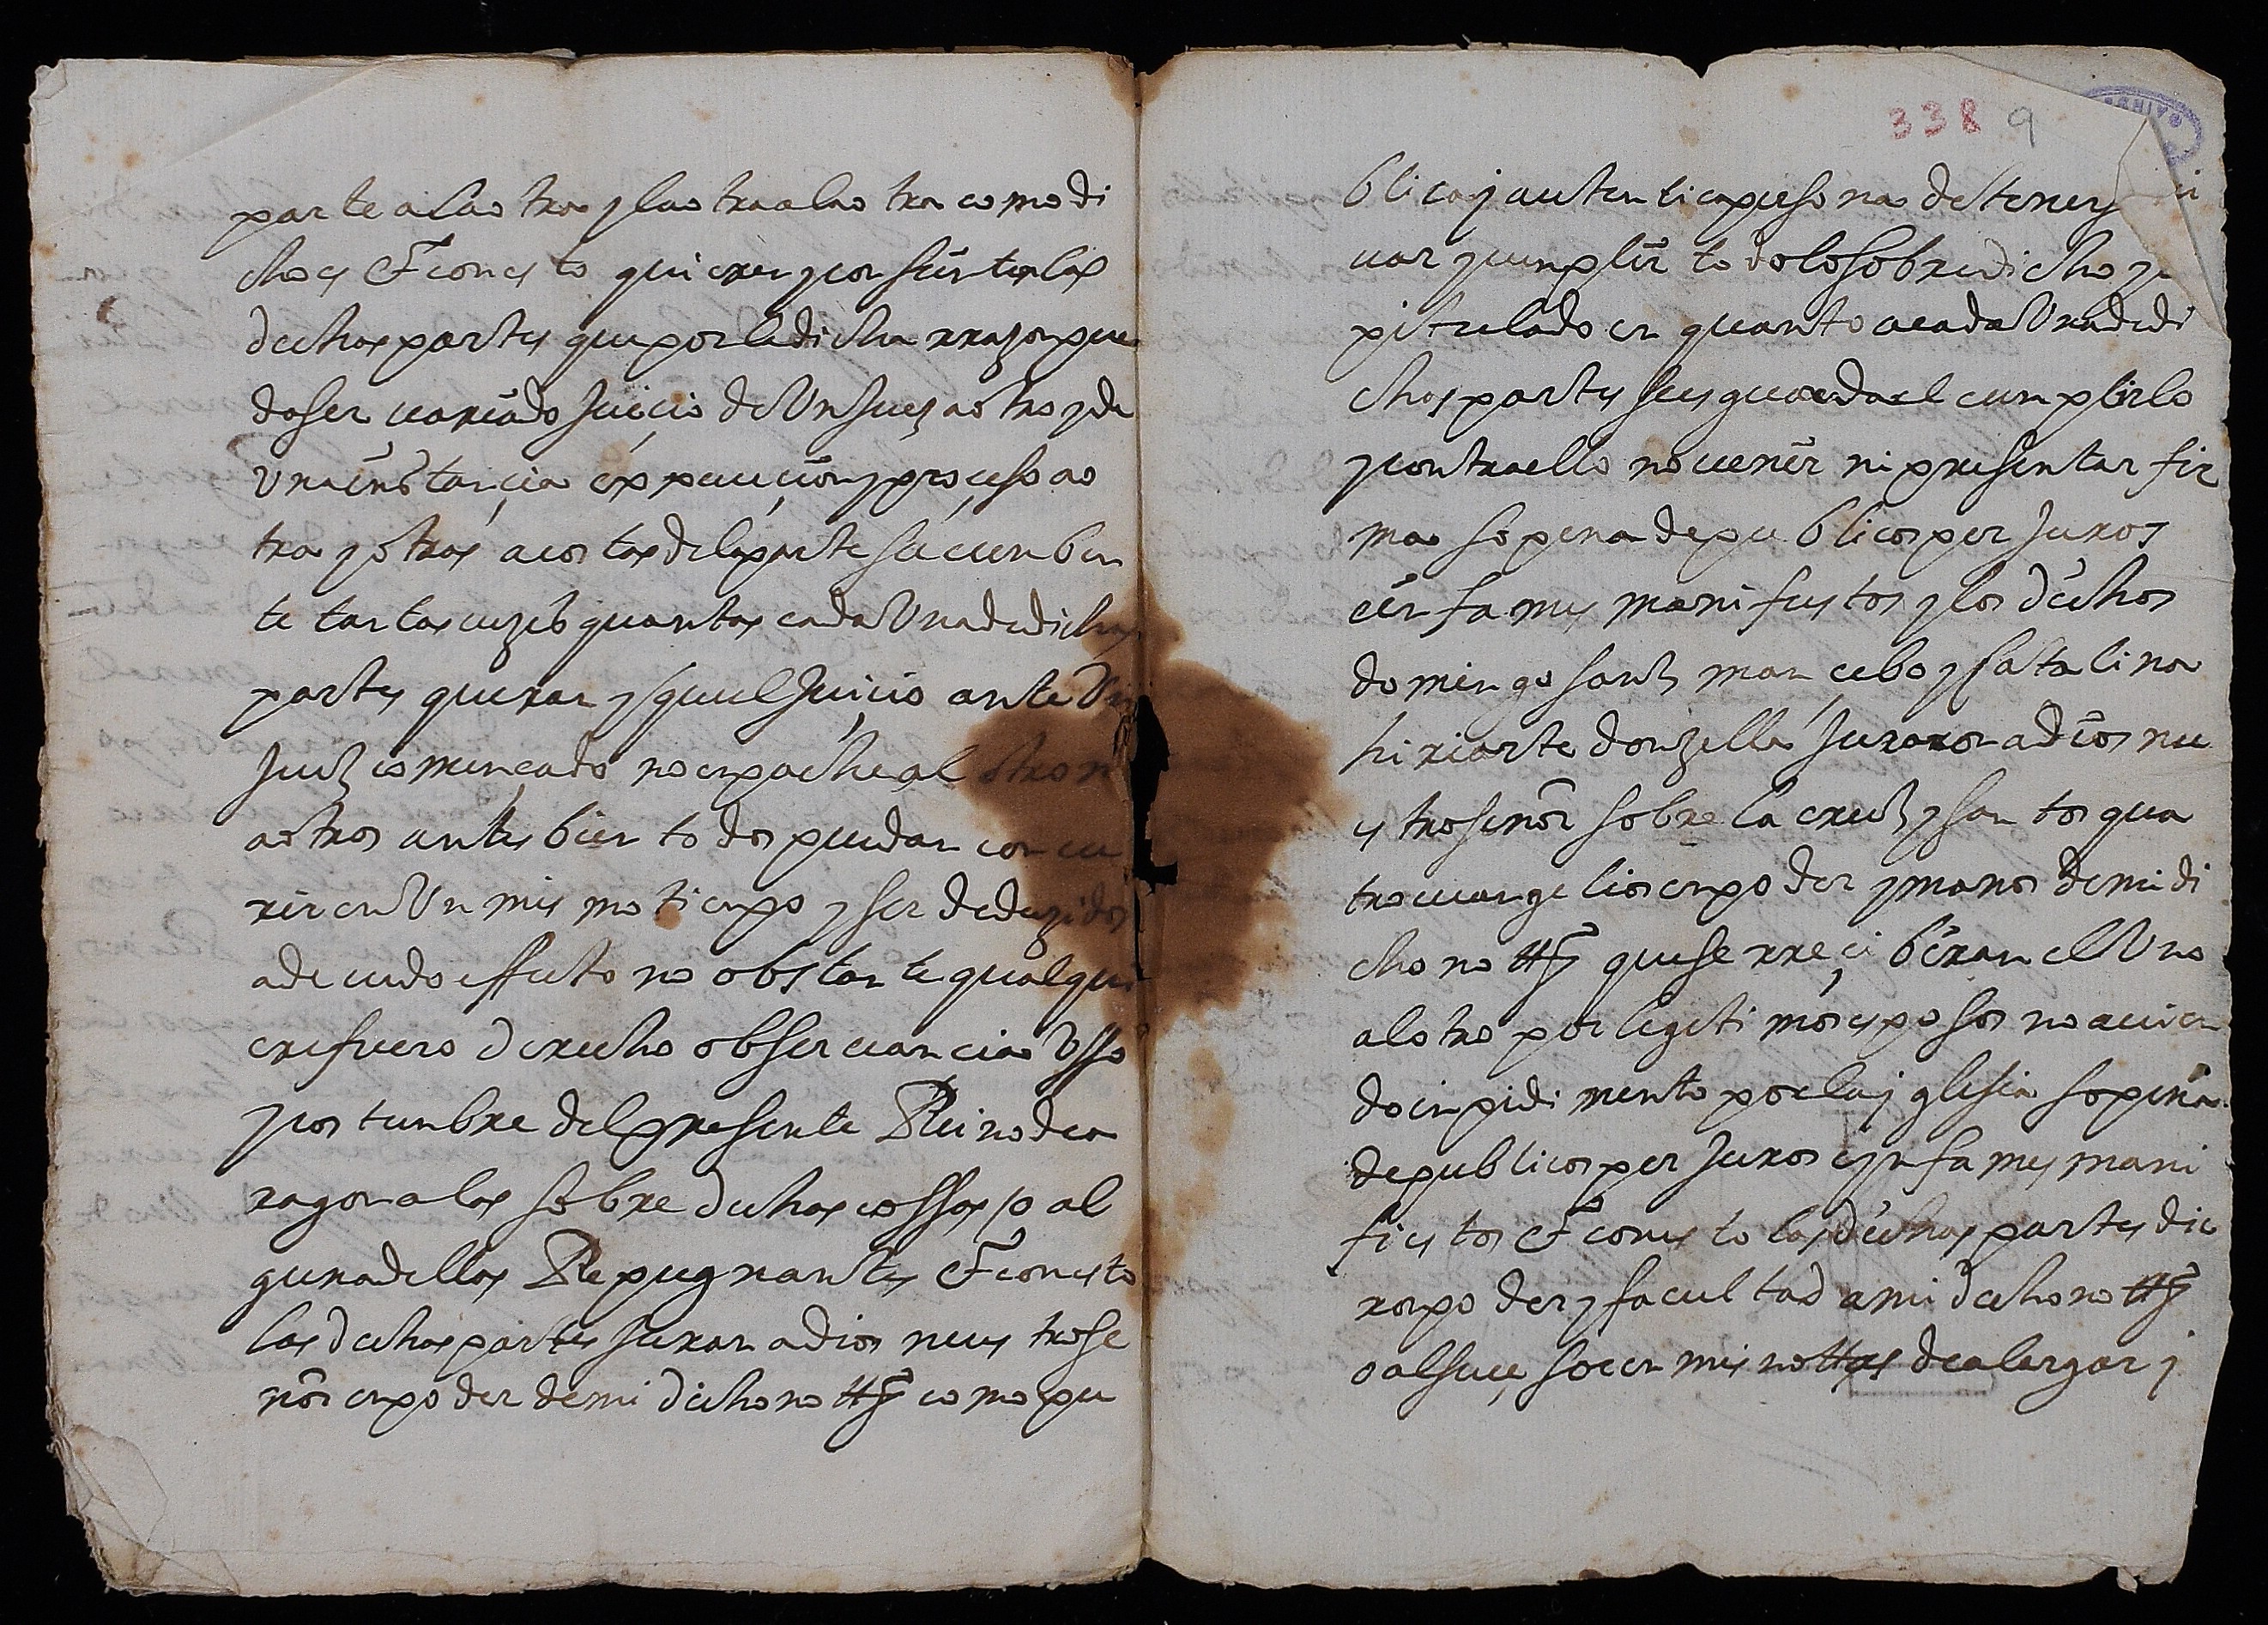 parte a la otra y la otra a la otra como di
cho es Et con esto quieren y consienten las
dichas partes que por la dicha rrazon pue
da ser variado Juicio de Un Juez a otro y de
Una instancia expecucion y proceso a o
tra y otras a costas de la parte sucunben
te tantas vezes quantas cada Una de dichas
partes queran y que el Juicio ante Un
Juez comencado no enpache al otro ni
a otros antes bien todos puedan concu
rir en Un mismo tienpo y ser deduzidos
a devudo effecto no obstante qualqui
ere fuero derecho observancia Usso
y costunbre del presente Reino de a
ragon a las sobre dichas cossas o al
guna dellas Repugnantes Et con esto
las dichas partes Juran a dios nuestro se
nor en poder de mi dicho nott como pu
338 9
blica y autentica persona de tener y
var y cunplir todo lo sobredicho y
pitulado en quanto a cada Una de di
chas partes sesguarda el cunplirlo
y contra ello no venir ni presentar fir
ma so pena de publicos per Juros
e infames manifestos y los dichos
domingo sanz mancebo y Catalina
hiriarte donzella Juraron a dios nu
estro senor sobre la cruz y santos qua
tro evangelios en poder y manos de mi di
cho nott que se rreciviran el Uno
al otro por legitimos esposos no avien
do inpidimento por la yglesia so pena
de publicos per Juros e ynfames mani
fiestos Et con esto las dichas partes die
ron poder y facultad a mi dicho nott
o al sucesoer en mis nottas de alargar y